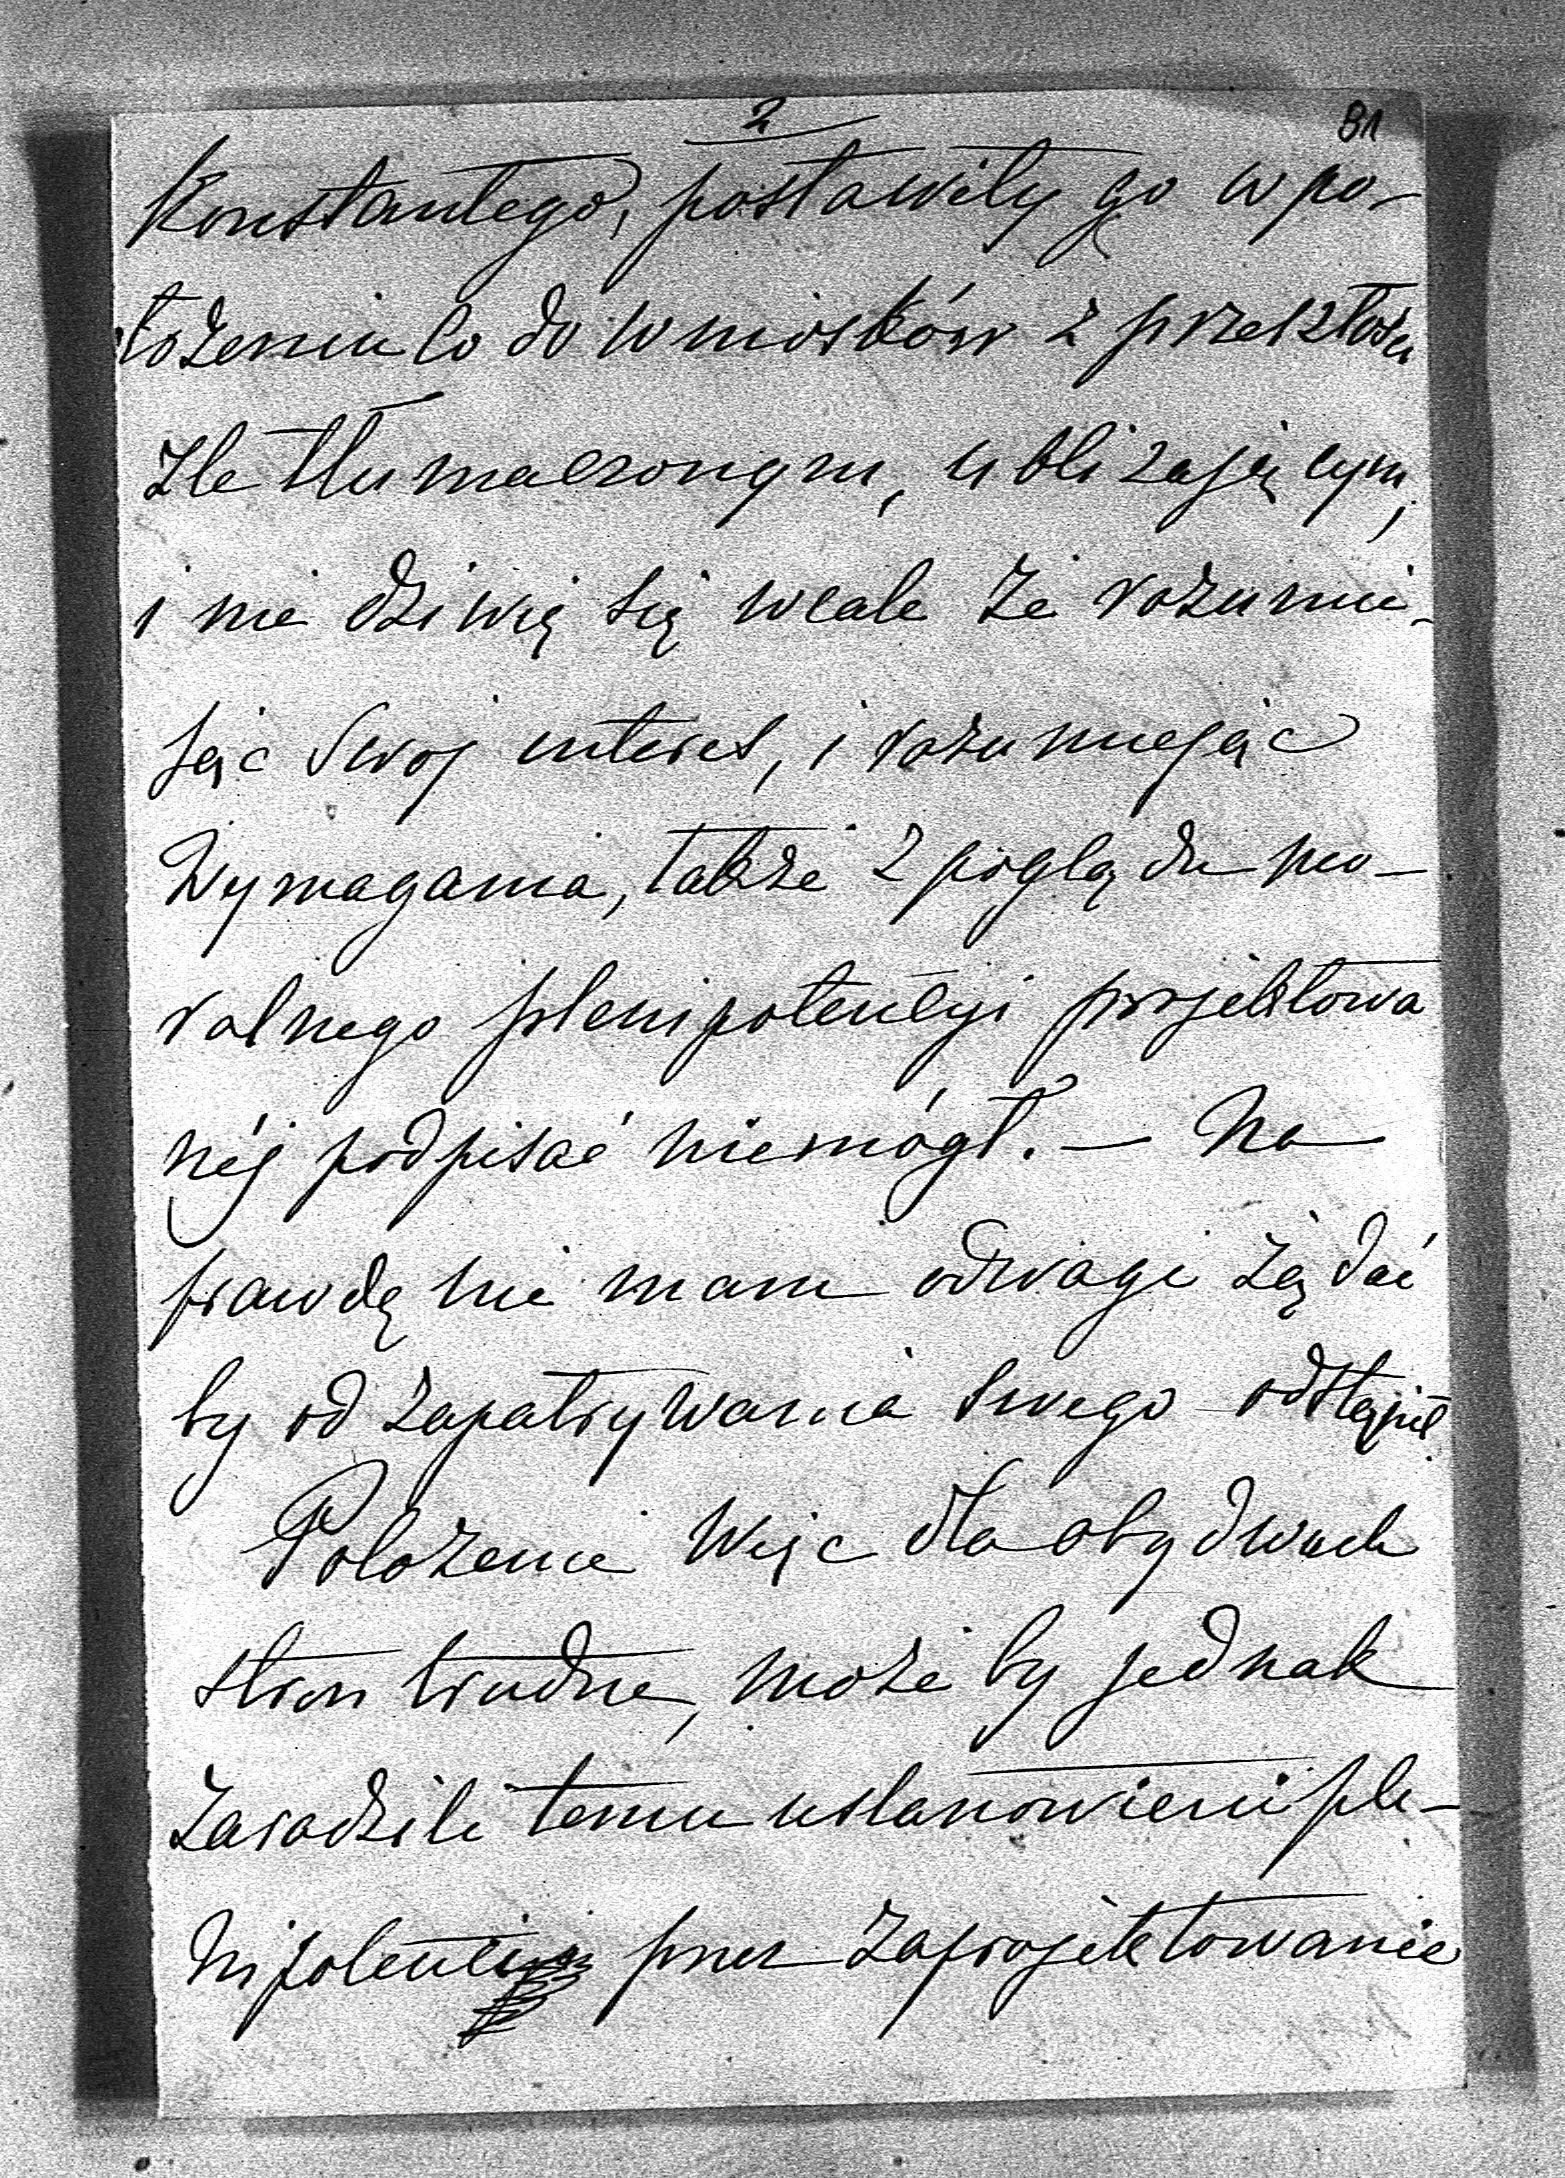 2
81
Konstantego, postawiły go w po-
łożeniu co do wniosków z przeszłości
źle tłumaczonym, ubliżającym,
i nie dziwię się wcale że rozumie-
jąc swoj interes, i rozumiejąc
Wymagania, także z poglądu mo-
ralnego plenipotencyi projektowa
néj podpisać niemógł. — Na
prawdę nie mam odwagi żądać
by od zapatrywania swego odstąpił.
Położenie więc dla obydwuch
stron trudne, może by jednak
zaradzili temu ustanowieni ple-
nipotenci przez zaprojektowanie